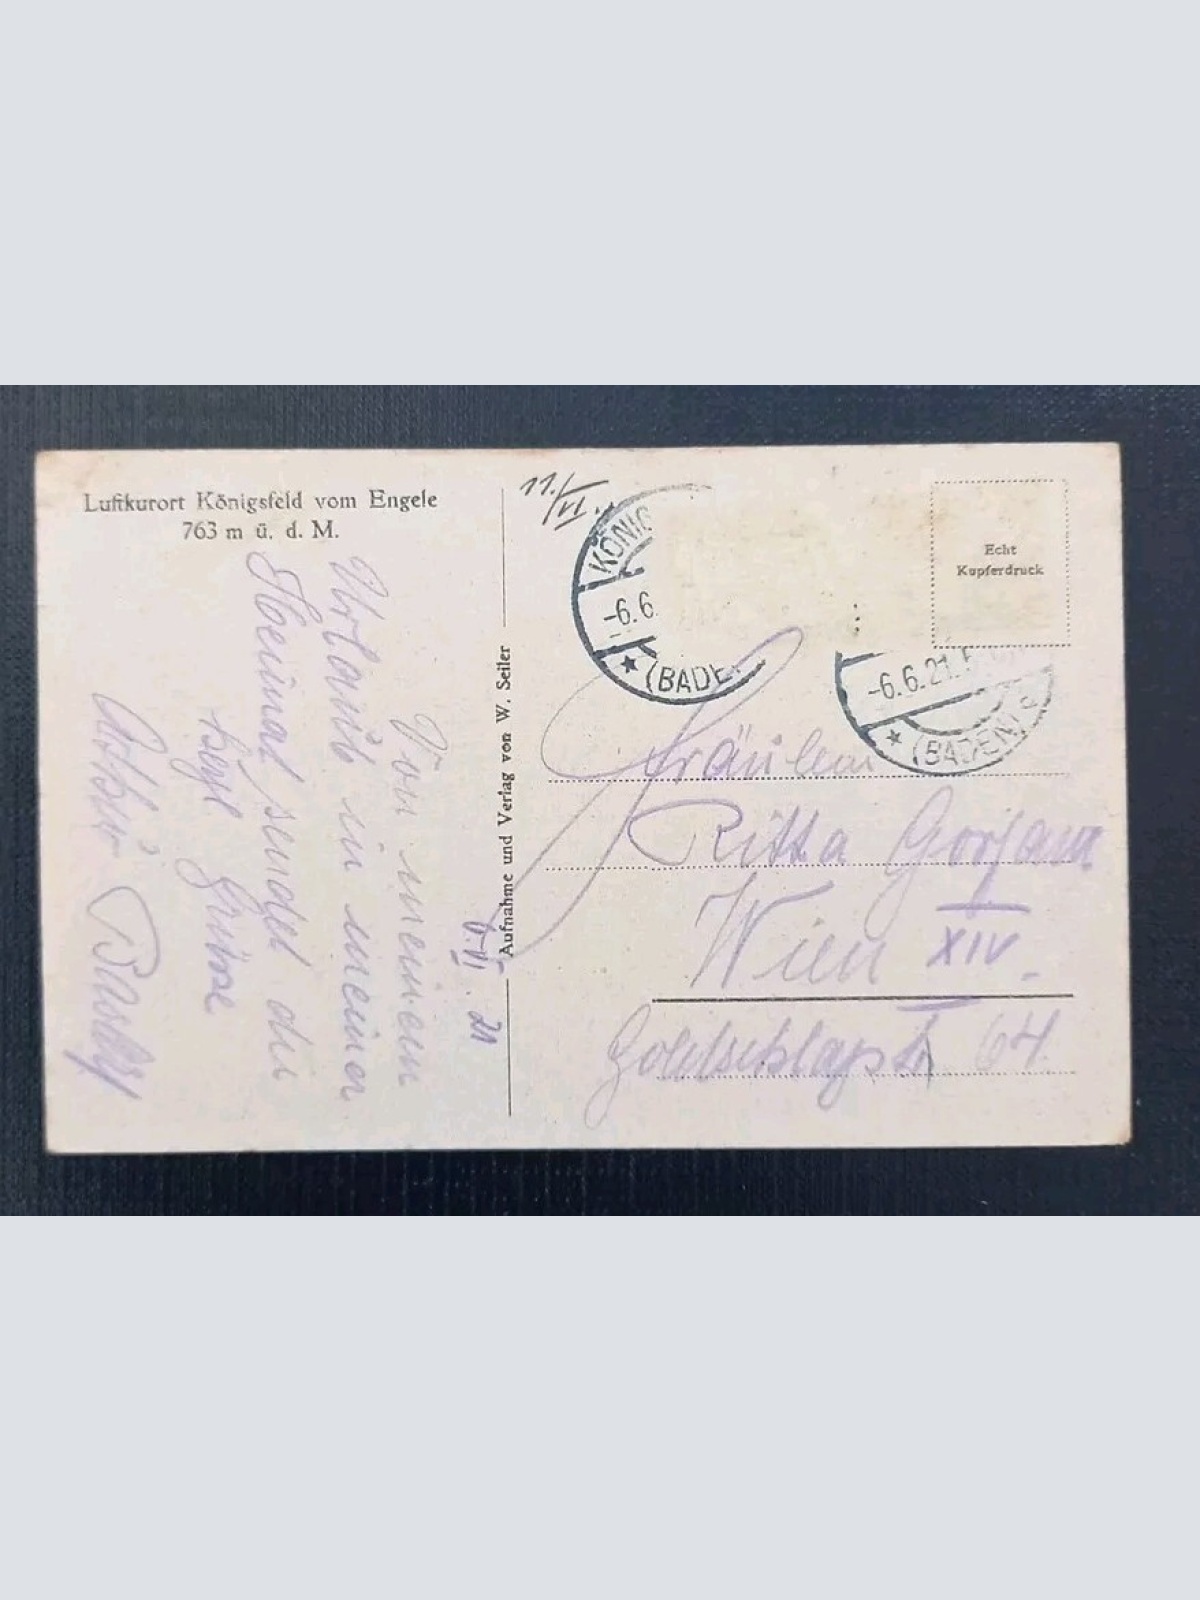 Luftkurort Königsfeld vom Engele
763 m ü. d. M.
6.VI.21
Von meinem
Urlaub in meiner
Heimat sendet die
Grüsse
Arthur
Aufnahme und Verlag von W. Seiler
11./VI.
KÖNIG
-6.6
(BADE
-6.6.21.
(BADEN)
Echt
Kupferdruck
Fräulein
Ritta
Wien XIV.
Goldschlagst 64.